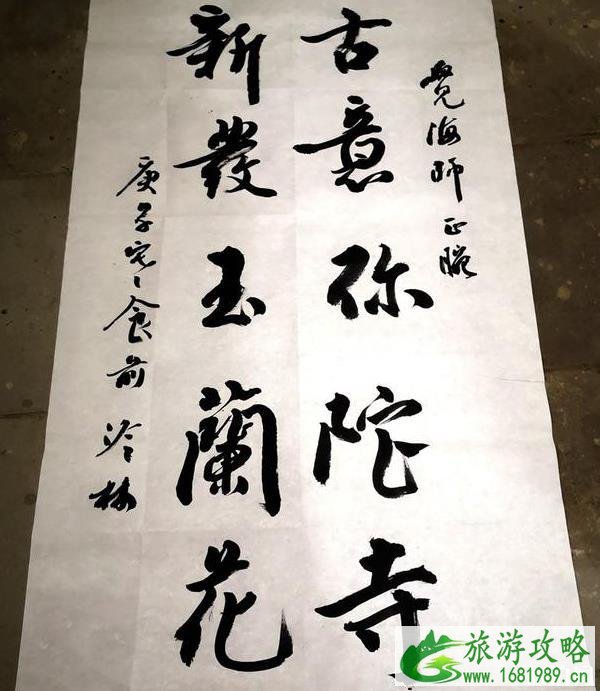 覺海師正腕
古意弥陀寺
新發玉蘭花
庚子寒食前
旅游攻略
www.1681989.cn